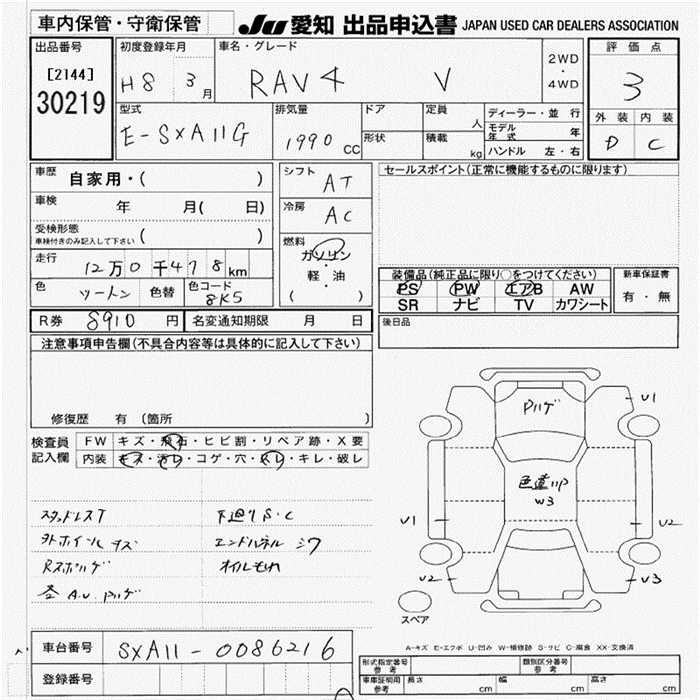 車内保管・守衛保管
JU 愛知 出品申込書 JAPAN USED CAR DEALERS ASSOCIATION
出品番号
[2144]
30219
初度登録年月
H8 3月
車名・グレード
RAV4 V
2WD
・
4WD
評価点
3
外装 内装
D C
型式
E-SXA11G
排気量
1990 CC
ドア
形状
定員 人
積載 kg
ディーラー・並行
モデル年式 年
ハンドル 左・右
車歴 自家用・( )
車検 年 月( 日)
受検形態
車検付きのみ記入して下さい ( )
走行 12万0千478km
色 ツートン 色替 色コード 8K5
シフト AT
冷房 AC
燃料
ガソリン
・
軽・油
( )
セールスポイント(正常に機能するものに限ります)
装備品(純正品に限り○をつけてください)
PS PW エアB AW
SR ナビ TV カワシート
新車保証書
有・無
後日品
R券 8910 円 名変通知期限 月 日
注意事項申告欄(不具合内容等は具体的に記入して下さい)
修復歴 有 (箇所 )
検査員
記入欄
FW キズ・飛石・ヒビ割・リペア跡・X要
内装 キズ・汚レ・コゲ・穴・スレ・キレ・破レ
スタッドレスT 下廻りS・C
外ホイールキズ
オイルもれ
U1
U1
U2
U2
U3
W3
スペア
車台番号 SXA11-0086216
登録番号
A-キズ E-エクボ U-凹み W-補修跡 S-サビ C-腐食 XX-交換済
形式指定番号
参考
類別区分番号
参考
車庫証明用
参考
長さ cm 幅 cm 高さ cm